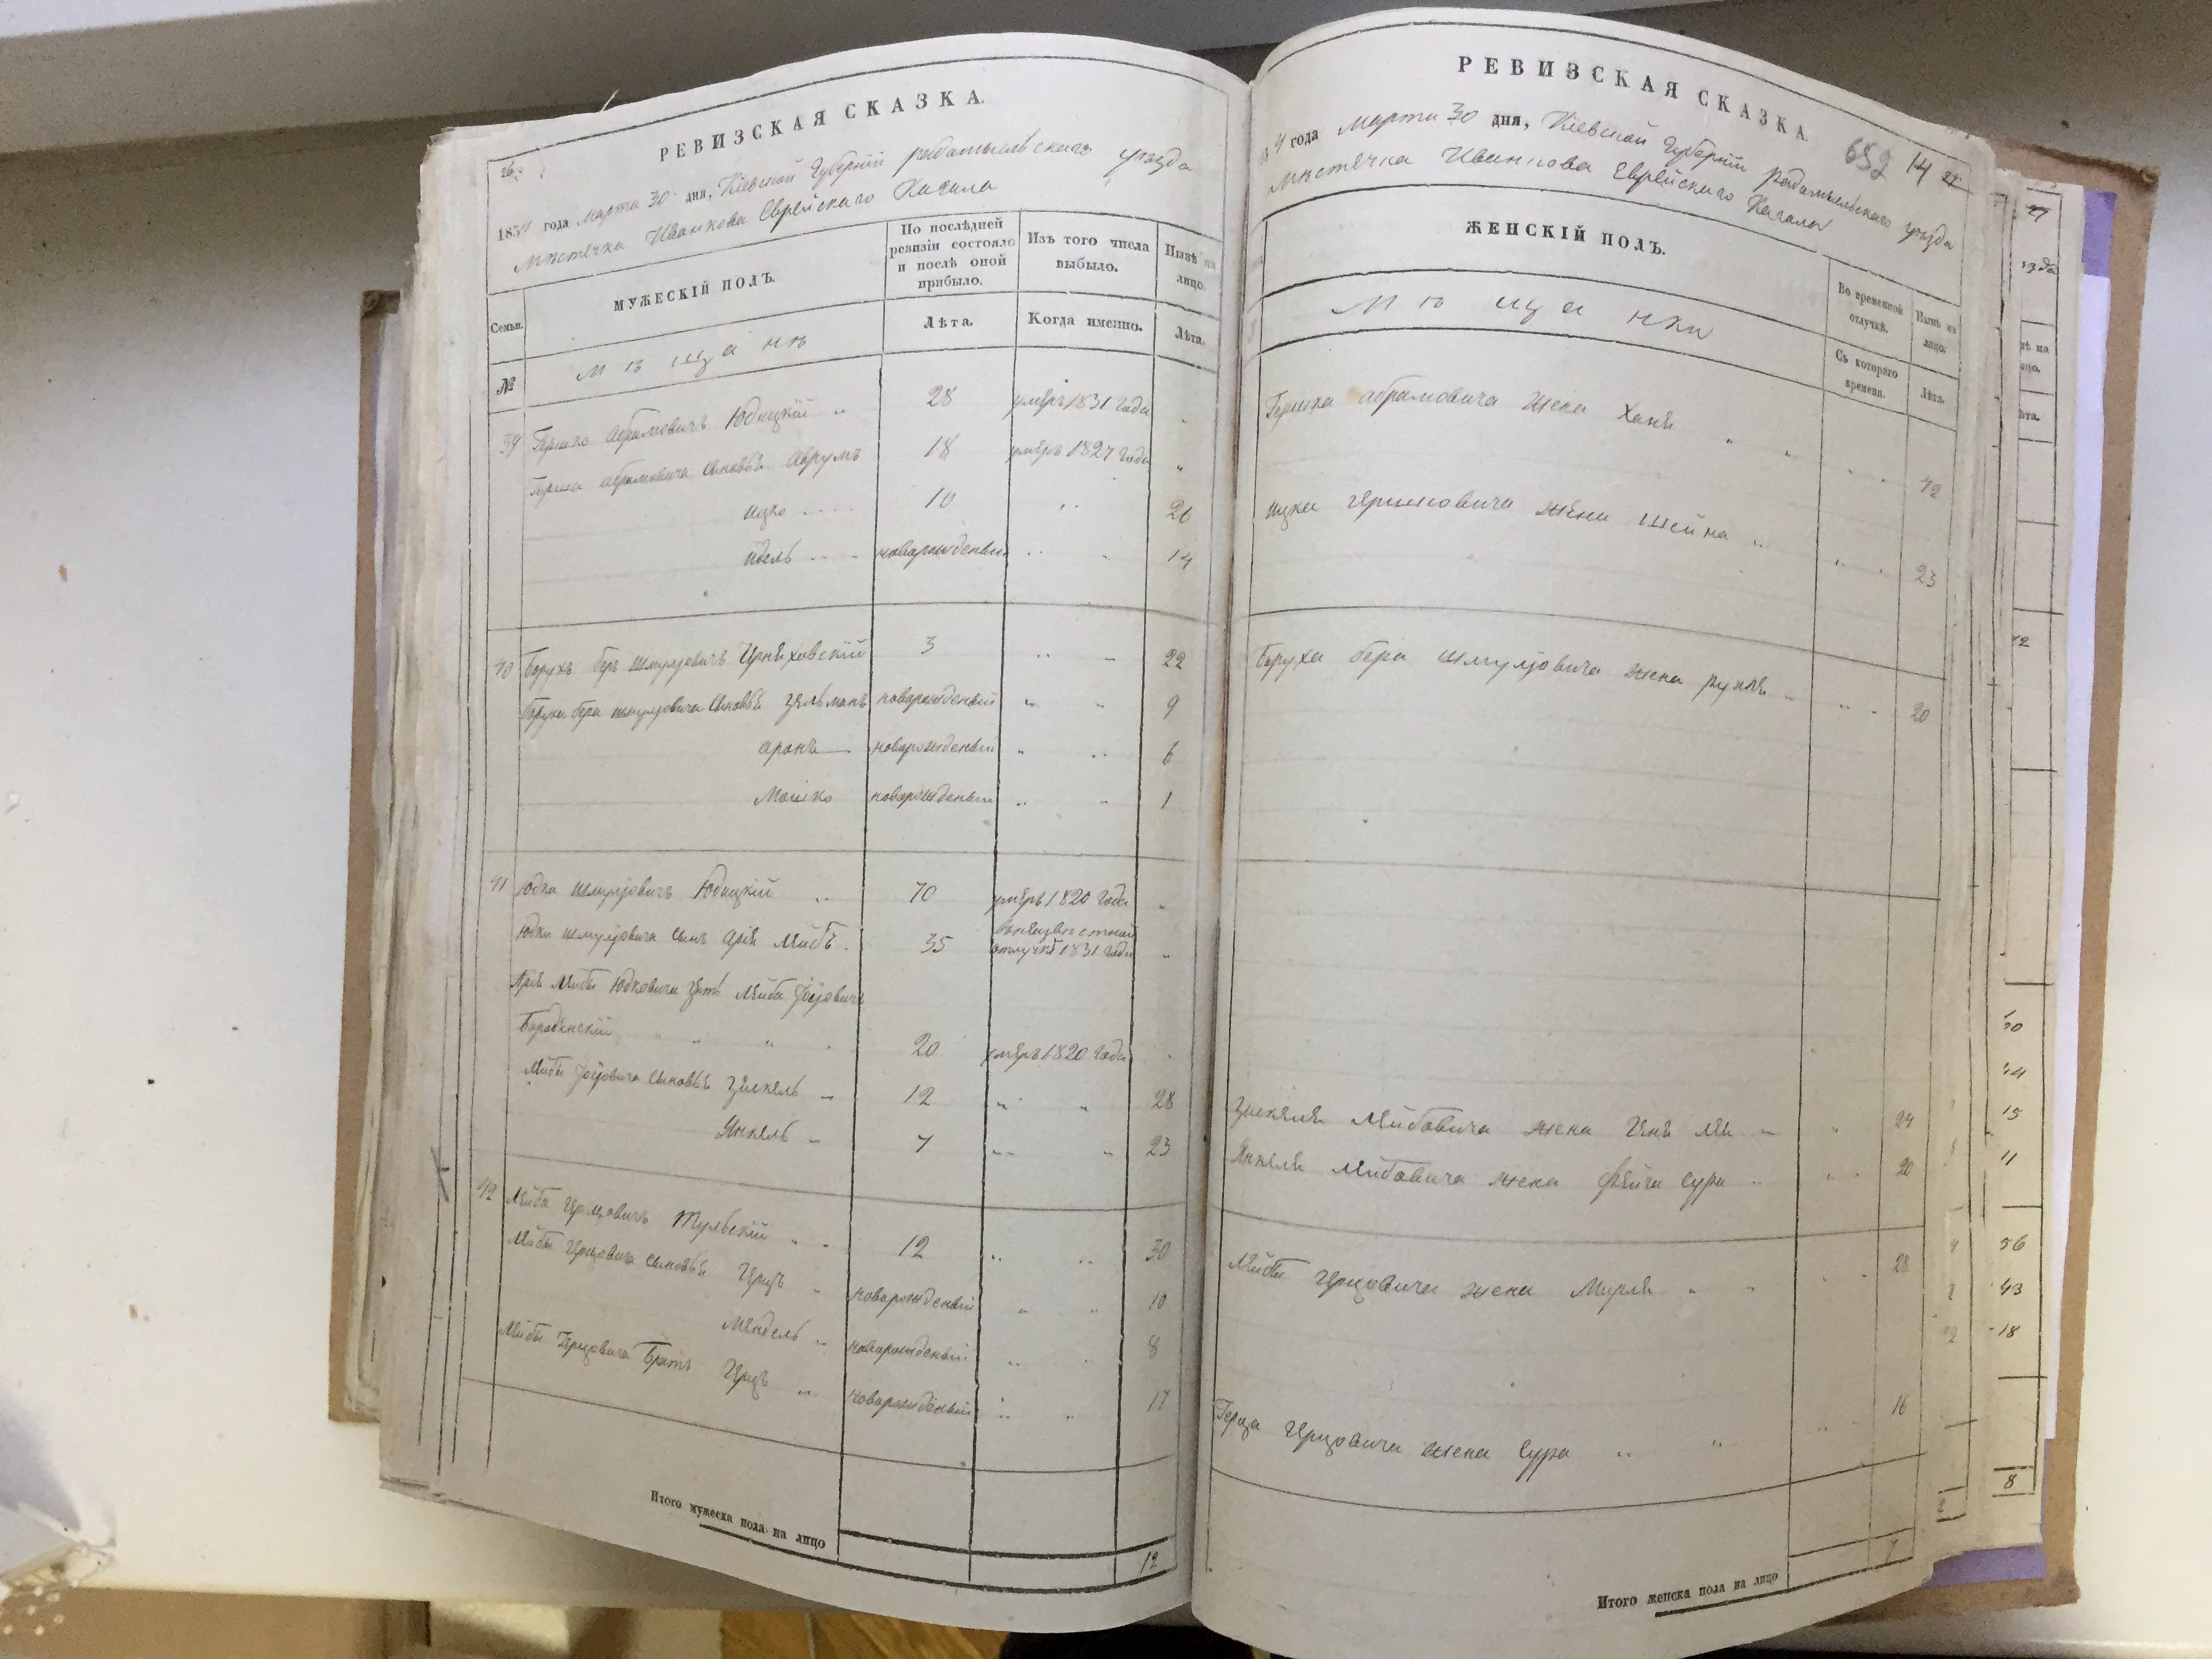 РЕВИЗСКАЯ СКАЗКА.
1834 года Марта 30 дня, Кіевской Губерніи радомысльскаго уѣзда
Мѣстечка Иванкова Еврейскаго Кагала
Семьи.
МУЖЕСКІЙ ПОЛЪ.
По послѣдней ревизіи состояло и послѣ оной прибыло.
Изъ того числа выбыло.
Нынѣ на лицо.
№
Мѣщанѣ
Лѣта.
Когда именно.
Лѣта.
39 Гершко Абрамовичъ Юдицкій 28 умеръ 1831 года
Герша абрамовича сыновья Аврумъ 18 умеръ 1827 года
ицко 10 26
новорожденый 14
40 Борухъ беръ шмулёвичъ Черняховскій 3 22
Боруха бера шмулёвича сыновья зельманъ новорожденый 9
аронъ новорожденый 6
Мошко новорожденый 1
41 Юдка шмулёвичъ Юдицкій 70 умеръ 1820 года
Юдки шмулёвича сынъ арія лейбъ 35 в неизвестной отлучкѣ 1831 года
Арія лейбы Юдковича зять лейба
20 умеръ 1820 года
Лейбы сыновья зускель 12 28
Янкель 7 23
42 Лейба герцовичъ 12 30
Лейбы герцовича сыновья герцъ новорожденый 10
мендель новорожденый 8
Лейбы Герцовича Братъ герцъ новорожденый 17
Итого мужеска пола на лицо 12
РЕВИЗСКАЯ СКАЗКА.
652 14
4 года марта 30 дня, Кіевской Губерніи радомысльскаго уѣзда
мѣстечка Иванкова Еврейскаго Кагала
ЖЕНСКІЙ ПОЛЪ.
Во временной отлучкѣ.
Нынѣ на лицо.
Мѣщанки
Съ котораго времени.
Лѣта.
Гершка абрамовича жена Ханя 42
ицка гершковича жена шейна 23
Боруха бера шмулёвича жена рухля 20
зускеля лейбовича жена 24
Янкеля лейбовича жена фейга сура 20
Лейбы герцовича жена Мирля 28
Герца герцовича жена Сура 16
Итого женска пола на лицо 7